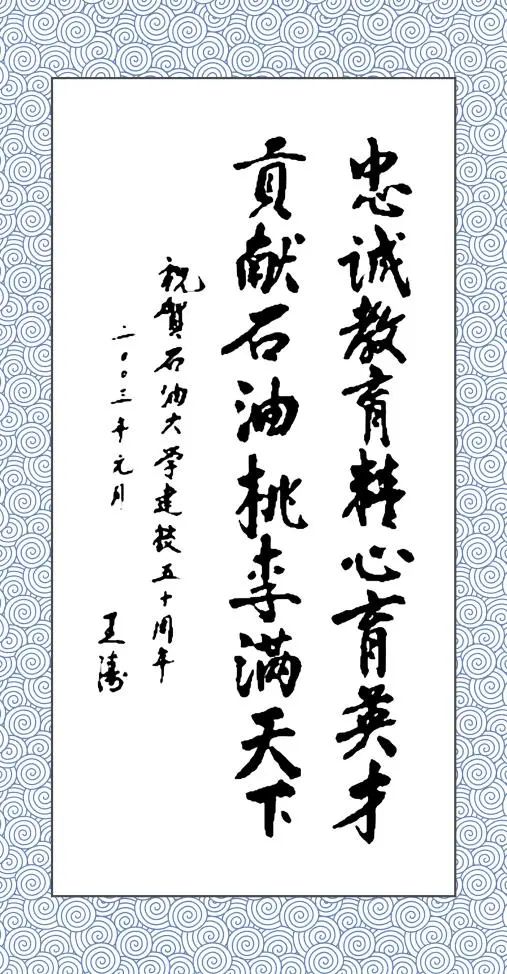 忠诚教育精心育英才
贡献石油桃李满天下
祝贺石油大学建校五十周年
二〇〇三年元月
王涛